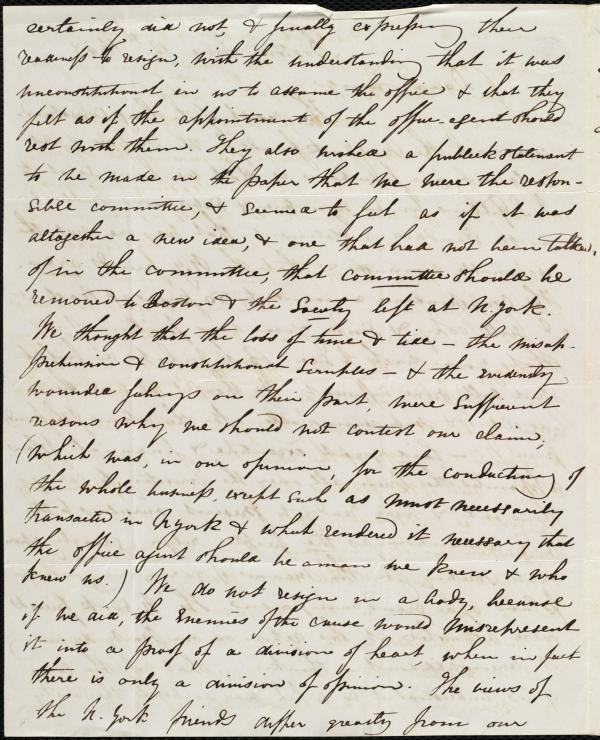 certainly did not, & finally expressing their
readiness to resign, with the understanding that it was
unconstitutional in us to assume the office & that they
felt as if the appointment of the office-agent should
rest with them. They also wished a publick statement
to be made in the paper that we were the respon-
sible committee, & seemed to feel as if it was
altogether a new idea, & one that had not been talked
of in the committee, that committee should be
removed to Boston & the Society left at N. York.
We thought that the loss of time & tide - the misap-
prehension & constitutional scruples - & the evidently
wounded feelings on their part, were sufficient
reasons why we should not contest our claim;
(which was, in our opinion, for the conducting of
the whole business, except such as must necessarily
transacted in N york & which rendered it necessary that
the office agent should be a man we knew & who
knew us.) We do not resign in a body, because
if we did, the enemies of the cause would misrepresent
it into a proof of a division of heart, when in fact
there is only a division of opinion. The views of
the N. York friends differ greatly from our